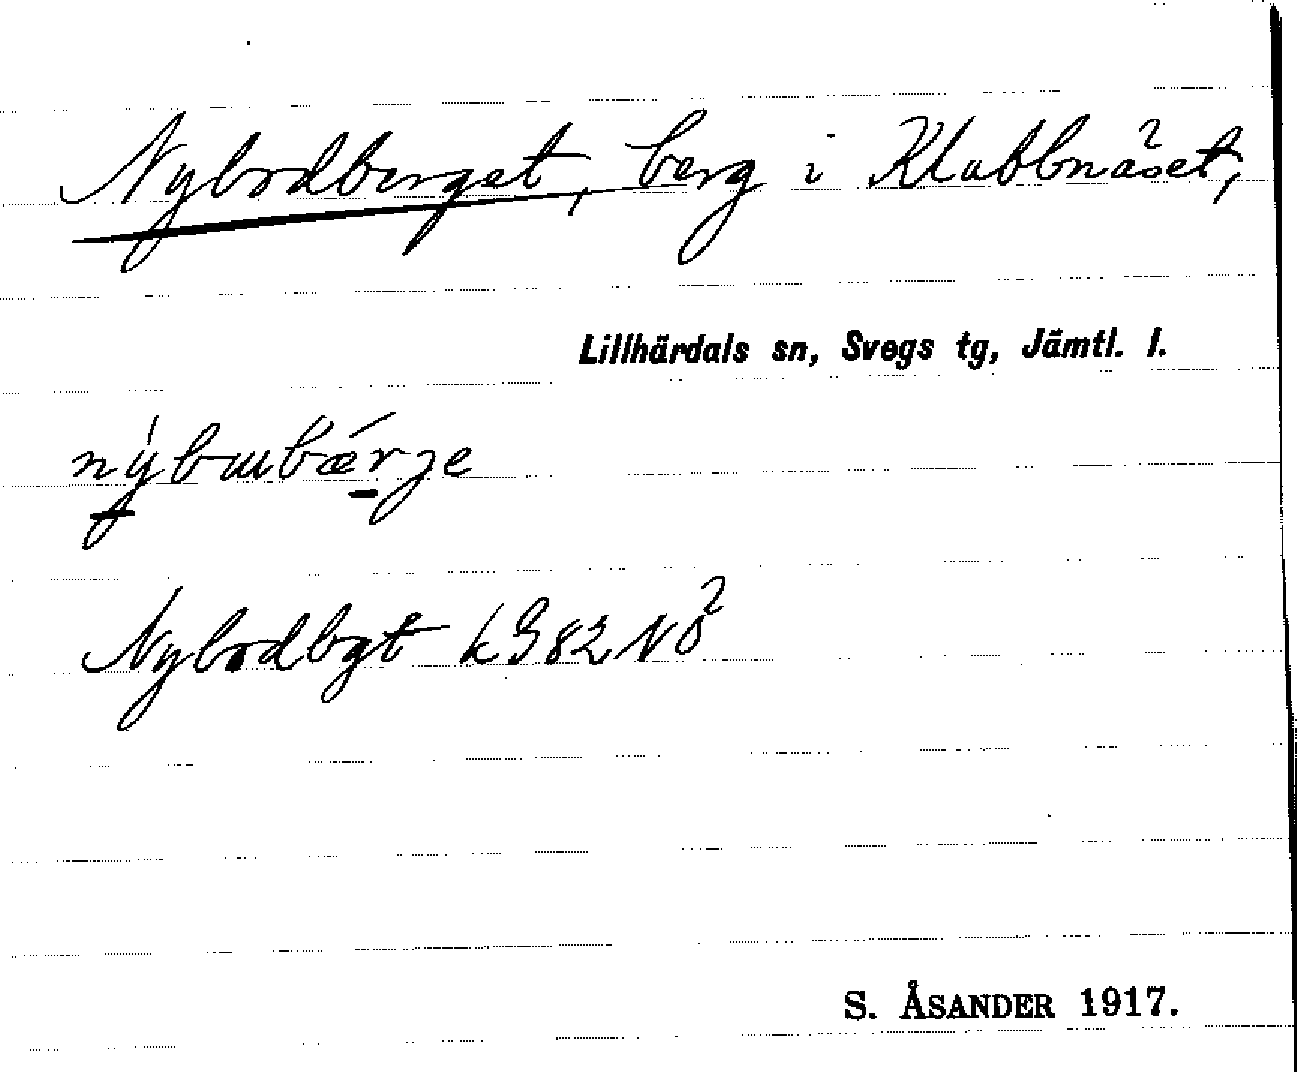 Nybodberget, berg i Klabbnäset,
Lillhärdals sn, Svegs tg, Jämtl. l.
nýbɯbǽrje
Nybodbgt kG82NÖ
S. ÅSANDER 1917.